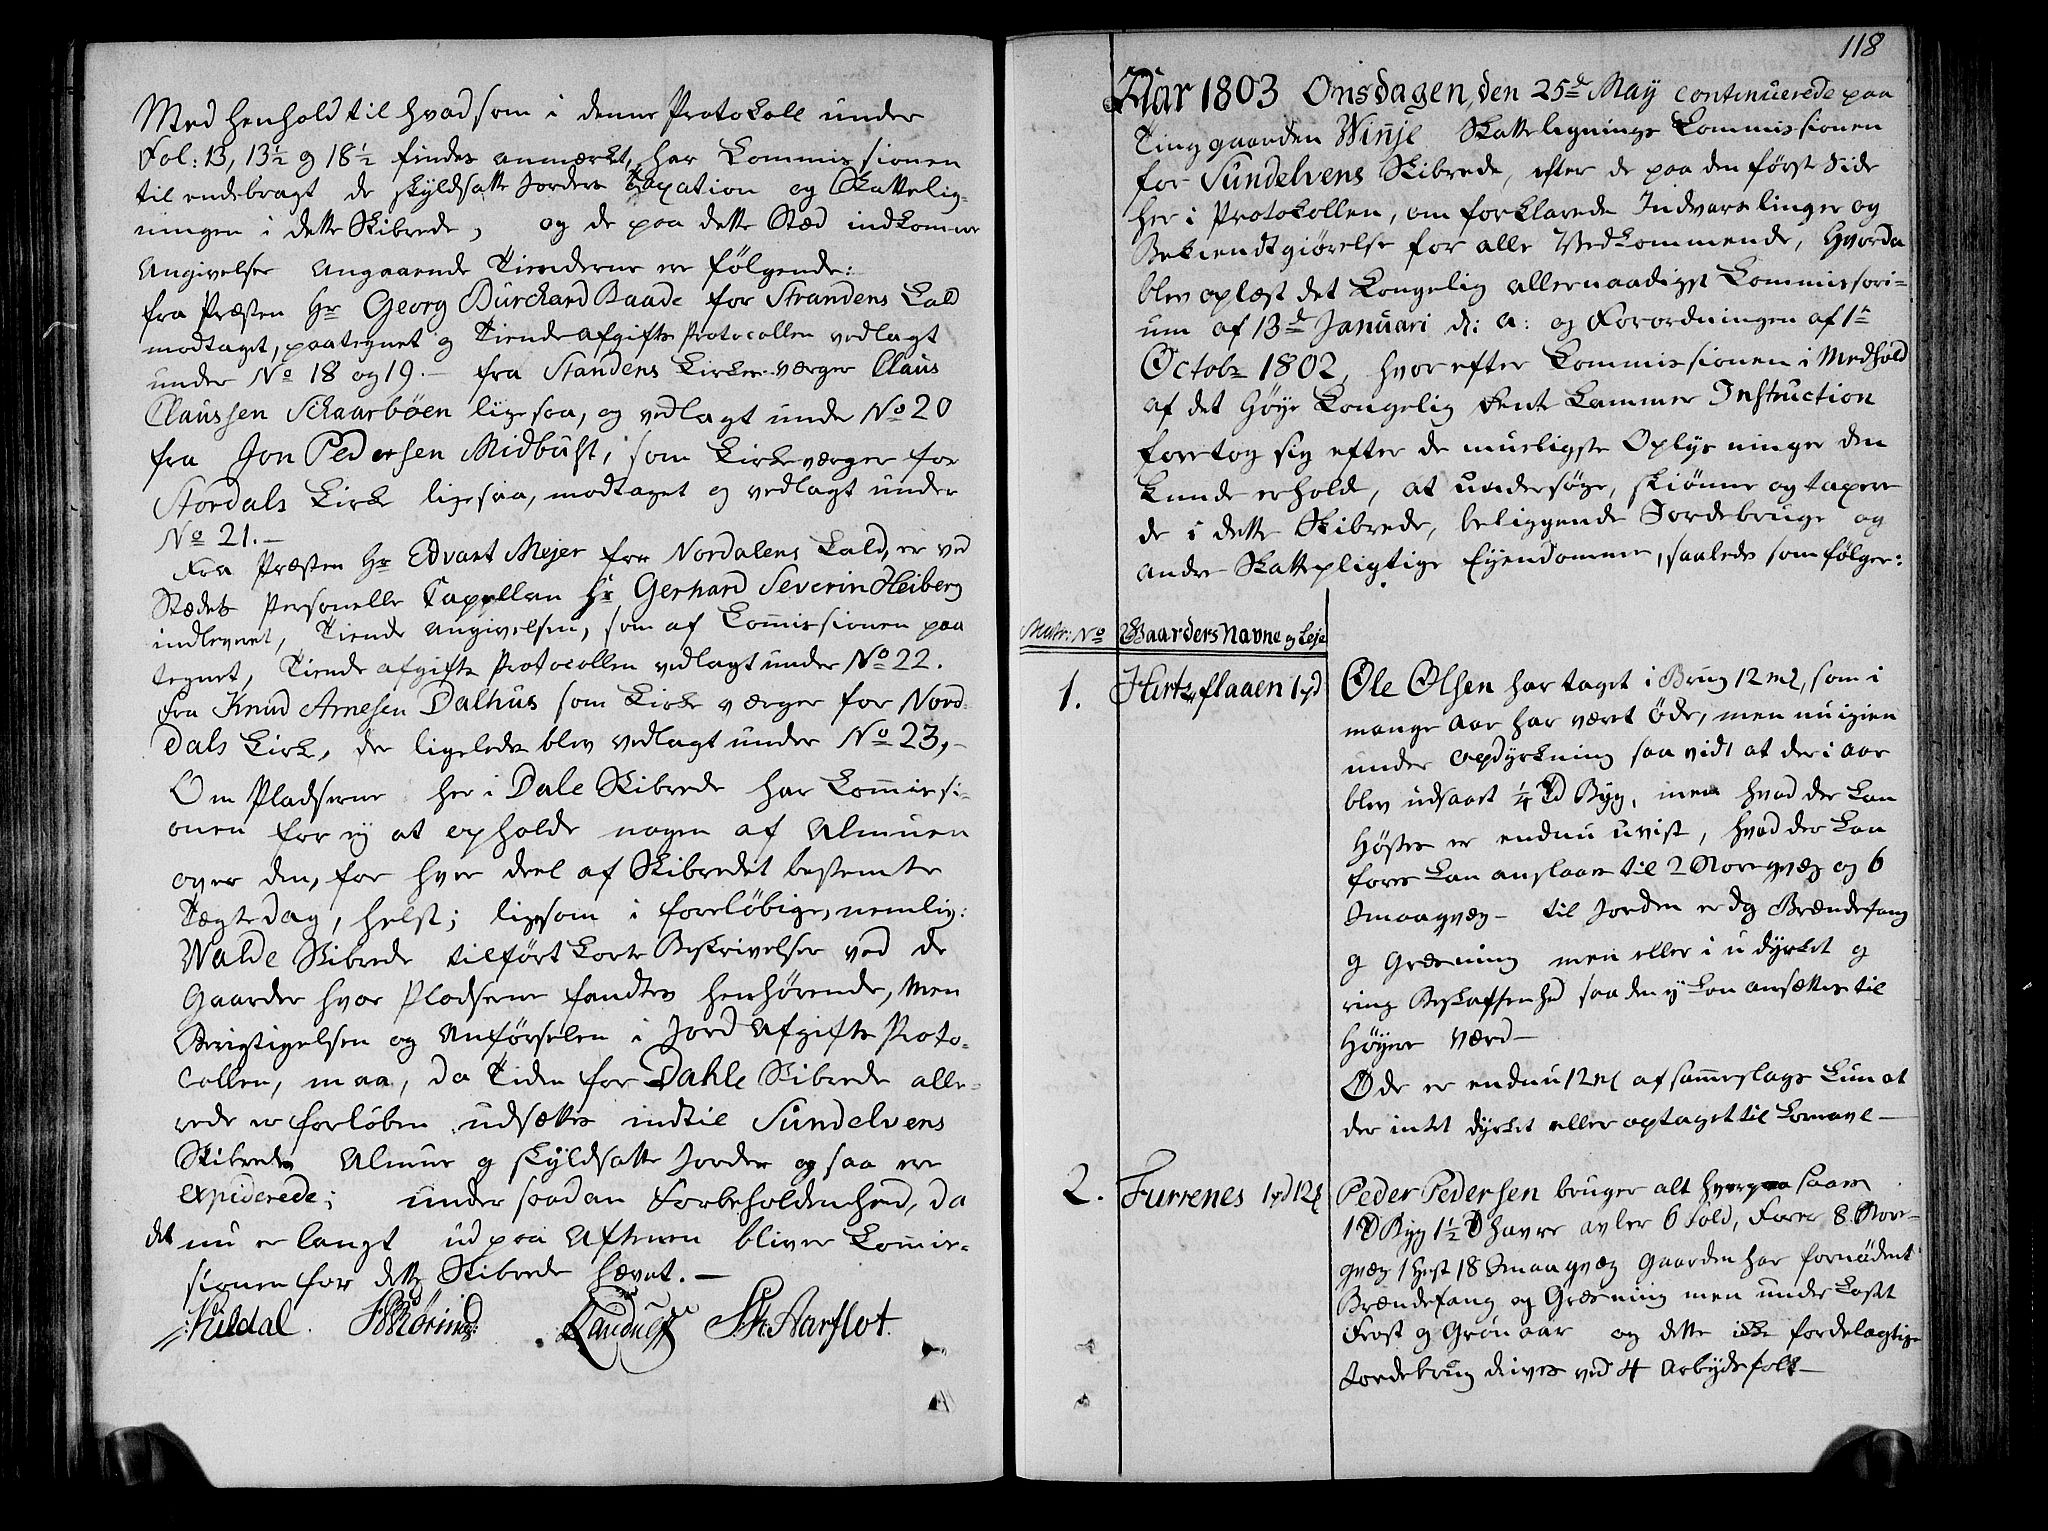 Med henhold til hvad som i denne Protokoll under
Fol: 13, 13½ og 18½ findes anmærkt, har Commissionen
til endebragt de skyldsatte Jorders Taxation og Skattelig-
ningen i dette Skibrede, og de paa dette Stæd indkomne
Angivelser angaaende Tienderne ere følgende:
fra Præsten Hr Georg Burchard Baade for Strandens Kald
modtaget, paategnet og Tiendeafgifts Protocollen vedlagt
under No 18 og 19.- fra Standens Kirkeværger Claus
Claussen Schaarbøen ligesaa, og vedlagt under No 20
fra Jon Pedersen Midbust, som Kirkeværger for
Stordals Kirke ligesaa, modtaget og vedlagt under
No 21.-
Fra Præsten Hr Edvart Mejer for Nordalens Kald, er ved
Stædets Personelle Capellan Hr Gerhard Severin Heiberg
indlevert, Tiende Angivelsen, som af Commissionen paa
tegnet, Tiende afgifts Protocollen vedlagt under No 22.
Fra Knud Arnesen Dalhus som Kirke værger for Nord-
dals Kirke, der ligeledes blev vedlagt under No 23,-
Om Pladserne her i Dale Skibrede har Commissi-
onen for ej at opholde nogen af Almuen
over den, for hver deel af Skibredet bestemte
Tægtedag, helst; ligesom i foreløbige, nemlig:
Walde Skibrede tilført korte Beskrivelser ved de
Gaarder hvor Pladserne fandtes henhørende, Men
Berigtigelsen og Anførselen i Jord Afgifts Proto-
collen, maa, da Tiden for Dahle Skibrede alle-
rede er forløben udsættes indtil Sundelvens
Skibredes Almue og skyldsatte Jorder og saa ere
expiderede; under saadan Forbeholdenhed, da
det nu er langt ud paa Aftenen bliver Commis-
sionen for dette Skibrede hævet.-
Kildal. Landmæ Sh: Aarflot.
118
Aar 1803 Onsdagen, den 25de May continuerede paa
Tinggaarden Winje Skatteligning Commissionen
for Sundelvens Skibrede, efter de paa den først Side
her i Protokollen, om forklarede Indvarslinger og
Bekiendtgiørelse for alle Vedkommende, Hvorda
blev oplæst det Kongelig allernaadigst Commissori-
um af 13de Januari d: a: og Forordningen af 1te
Octobr 1802, hvorefter Commissionen i Medhold
af det Høye Kongelig Rente Kammer Instruction
foretog sig efter de mueligste Oplysninger den
kunde erholde, at undersøge, skiønne og taxere
de i dette Skibrede, beliggende Jordebruge og
andre Skattepligtige Eyendomme, saaleds som følger:
Matr: No Gaarders Navne og Leje
1. Hurtzflaaen 1pd Ole Olsen har taget i Brug 12 mL, som i
mange Aar har været Øde, men nu igien
under opdyrkning saa vidt at der i aar
blev udsaaet ¼ Td Byg, men hvad der kan
Høstes er endnu uvist, hvad der kan
fores kan anslaaes til 2 Storegvæg og 6
Smaagvæg - til Jorden er dg Brændefang
g Græsning men eller i udyrket g
ring Beskaffenhed saa den ej kan ansættes til
Høyere Værd-
Øde er endnu 12 mL af sammeslags kun at
der intet dyrket eller optaget til Kornavl-
2. Furrenes 1pd 12L Peder Pedersen bruger alt saaer
1 Td Byg 1½ Td havre avler 6 fold, Forer 8 Stor-
gvæg 1 hest 18 Smaagvæg Gaarden har fornødent
Brændefang og Græsning men underkastet
Frost g Grønaar og dette ikke fordelagtige
Jordebrug drives ved 4 Arbejdsfolk-